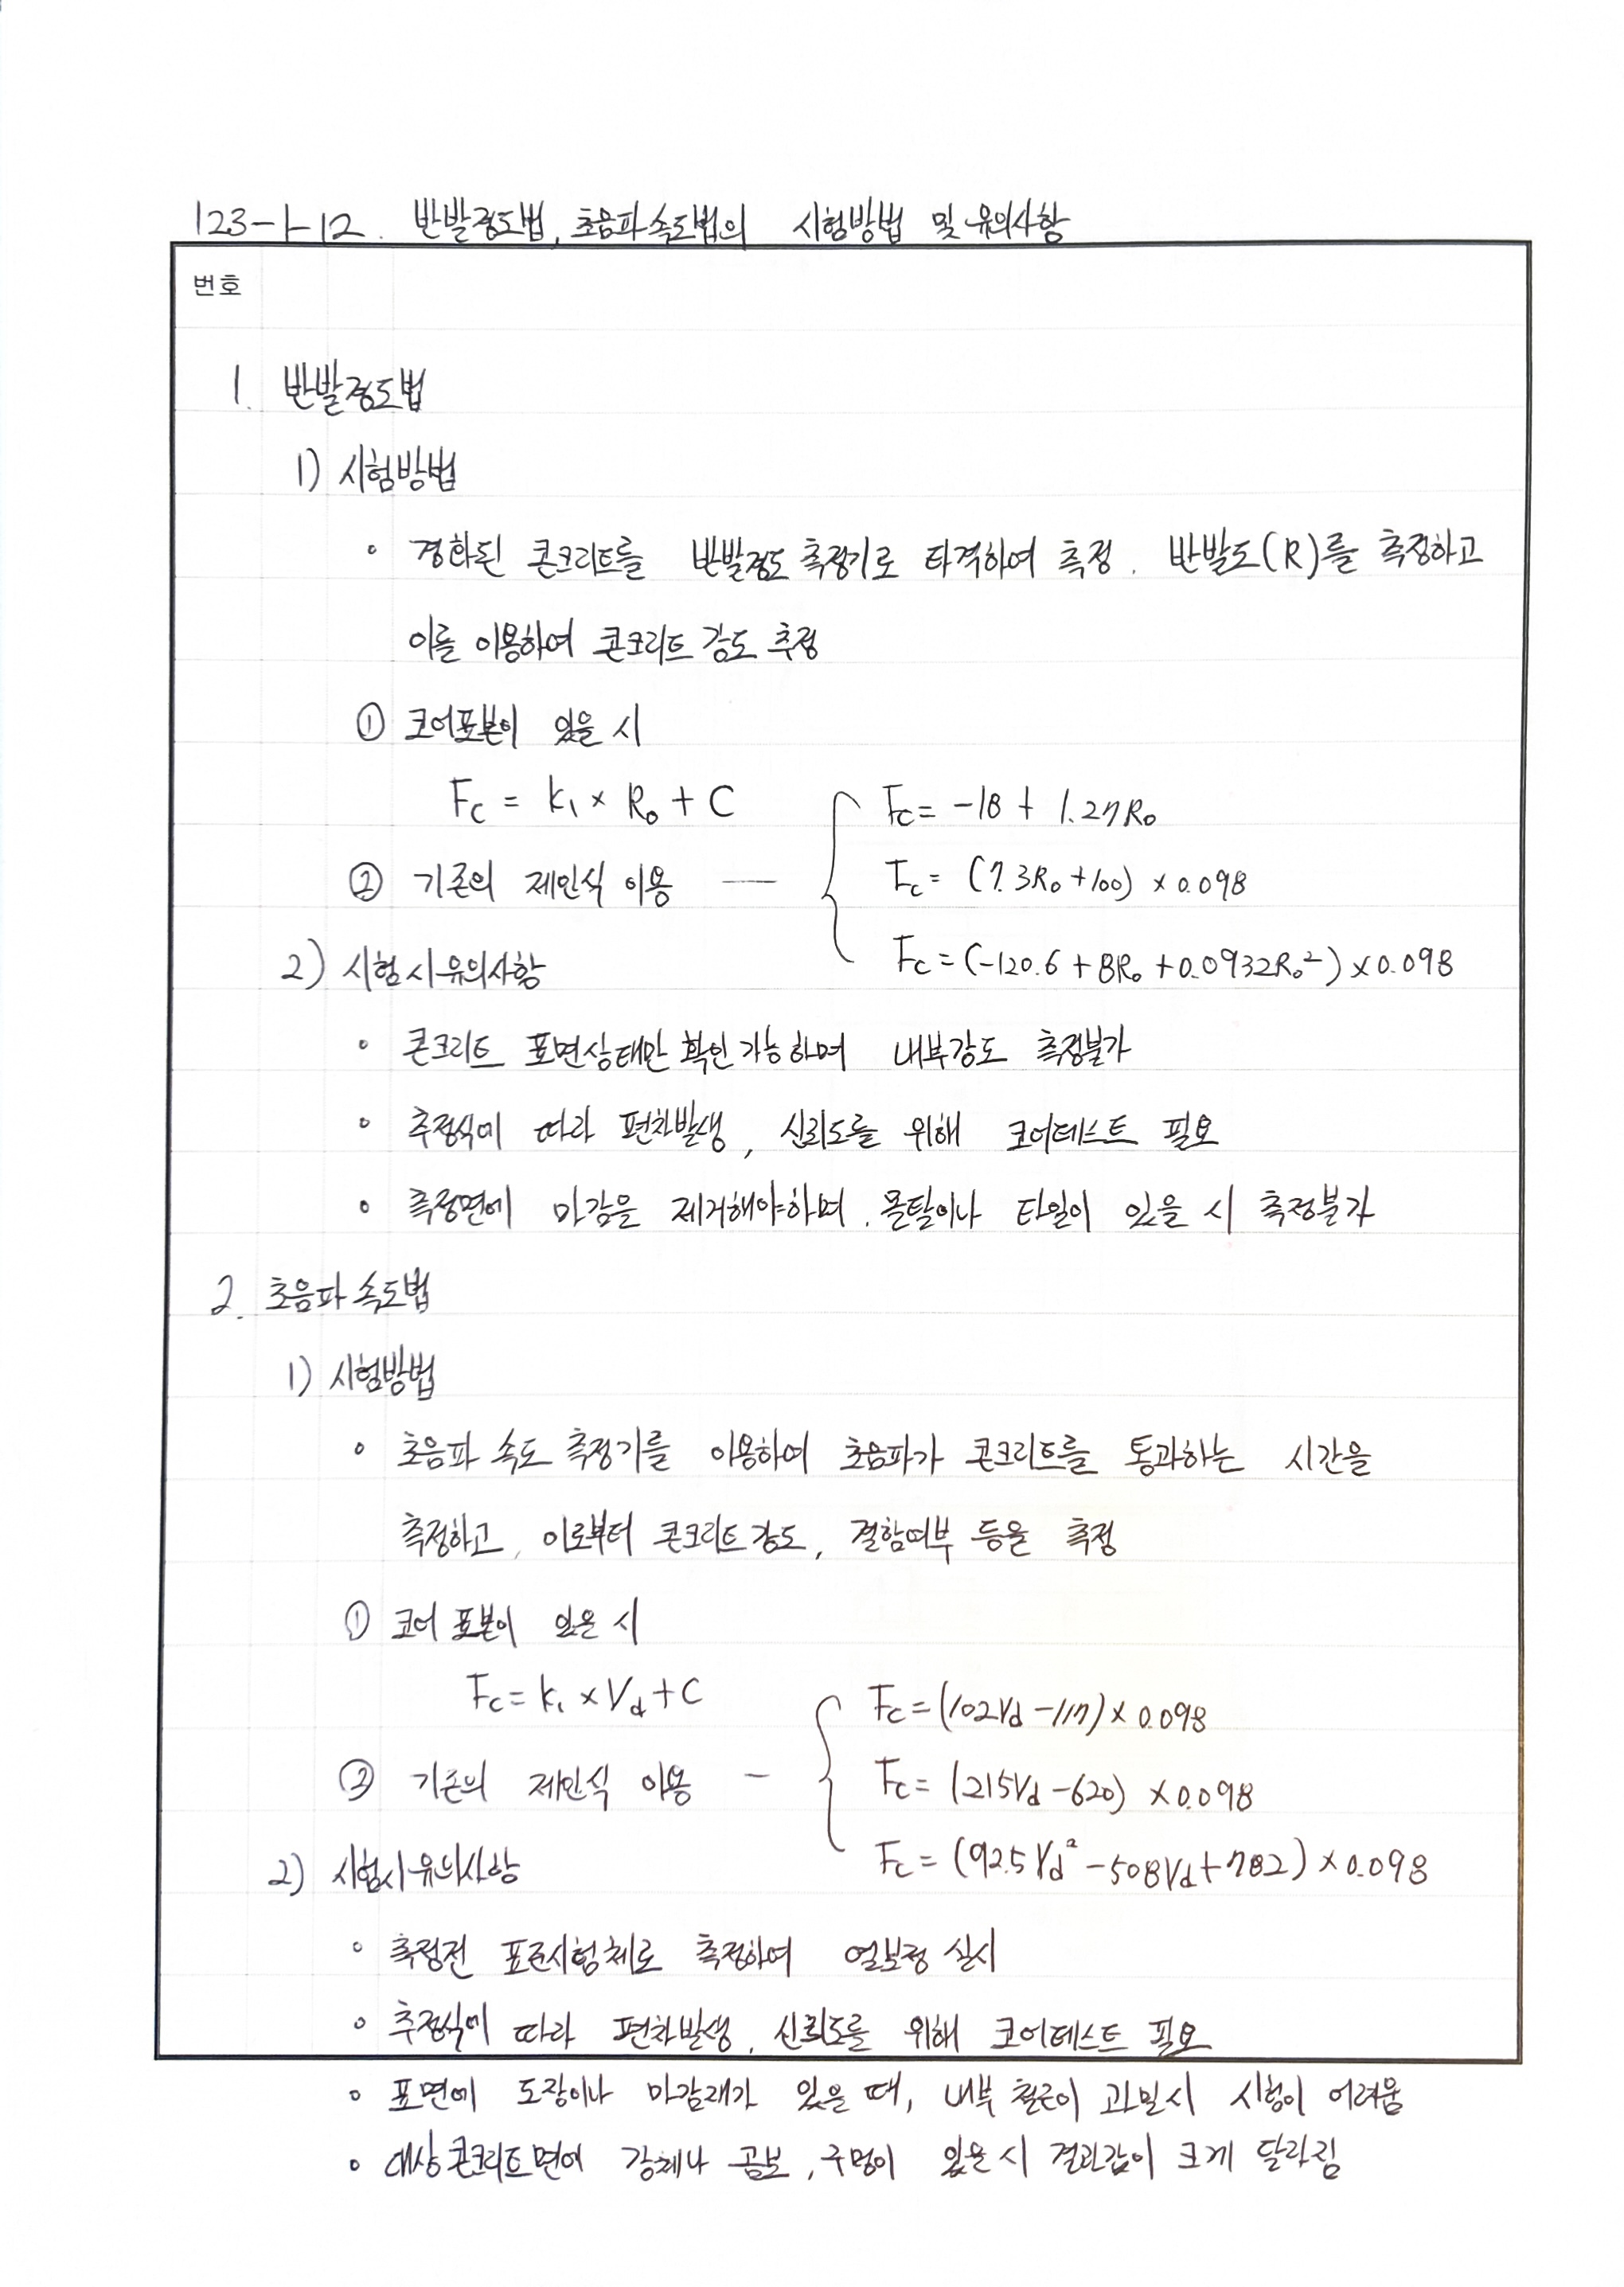 123-1-12. 반발경도법, 초음파속도법의 시험방법 및 유의사항
번호
1. 반발경도법
1) 시험방법
• 경화된 콘크리트를 반발경도 측정기로 타격하여 측정. 반발도(R)를 측정하고
이를 이용하여 콘크리트 강도 추정
① 코어표본이 있을 시
Fc = k₁ × R₀ + C
Fc = -18 + 1.27R₀
② 기존의 제안식 이용 —
Fc = (7.3R₀ + 100) × 0.098
Fc = (-120.6 + 8R₀ + 0.0932R₀²) × 0.098
2) 시험시 유의사항
• 콘크리트 표면상태만 확인 가능하며 내부강도 측정불가
• 추정식에 따라 편차발생, 신뢰도를 위해 코어테스트 필요
• 측정면에 마감을 제거해야하며, 몰탈이나 타일이 있을 시 측정불가
2. 초음파 속도법
1) 시험방법
• 초음파 속도 측정기를 이용하여 초음파가 콘크리트를 통과하는 시간을
측정하고, 이로부터 콘크리트 강도, 결함여부 등을 측정
① 코어 표본이 있을 시
Fc = k₁ × Vd + C
Fc = (102Vd - 117) × 0.098
② 기존의 제안식 이용 —
Fc = (215Vd - 620) × 0.098
Fc = (92.5Vd² - 508Vd + 782) × 0.098
2) 시험시 유의사항
• 측정전 표준시험체로 측정하여 영보정 실시
• 추정식에 따라 편차발생, 신뢰도를 위해 코어테스트 필요
• 표면에 도장이나 마감재가 있을 때, 내부 철근이 과밀시 시험이 어려움
• 대상콘크리트면에 강체나 곰보, 구멍이 있을 시 결과값이 크게 달라짐